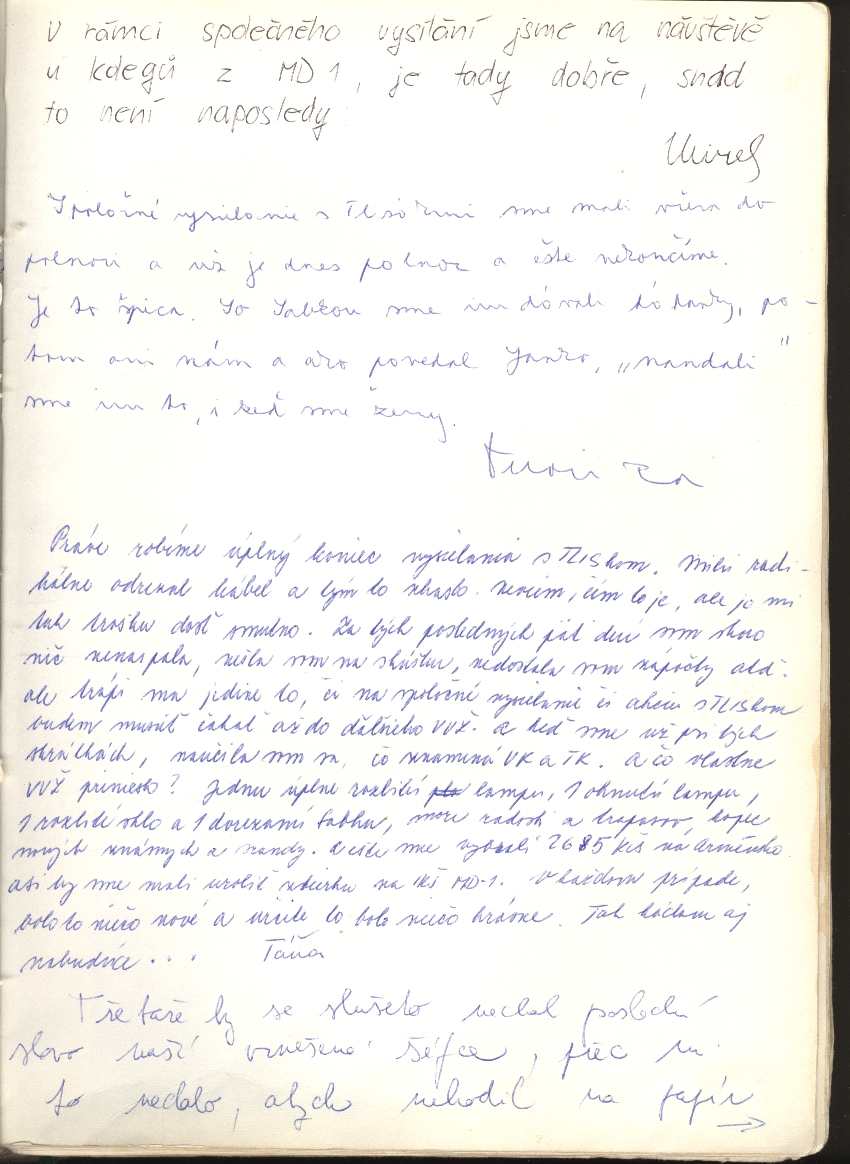 V rámci společného vysílání jsme na návštěvě
u kolegů z MD1, je tady dobře, snad
to není naposledy
Mirek
Spoločné vysielanie s TLISákmi sme mali včera do
polnoci a už je dnes polnoc a ešte nekončíme.
Je to špica. So Sabkou sme im dávali hádanky, po-
tom oni nám a ako povedal Janko, „nandali"
sme im to, i keď sme ženy.
Práve robíme úplný koniec vysielania s TLISkom. Miňo radi-
kálne odrezal kábel a tým to zhaslo. Neviem, čím to je, ale je mi
tak trošku dosť smutno. Za tých posledných päť dní som skoro
nič nenaspala, nešla som na skúšku, nedostala som zápočty atď.
ale trápi ma jedine to, či na spoločné vysielanie či akciu s TLISkom
budem musieť čakať až do ďalšieho VVŽ. A keď sme už pri tých
skratkách, naučila som sa, čo znamená VK a TK. A čo vlastne
VVŽ prinieslo? Jednu úplne rozbitú lampu, 1 ohnutú lampu,
1 rozbité sklo a 1 dorezanú Sabku, more radosti a trapasov, kopec
nových známych a srandy. A ešte sme vybrali 2685 Kčs na Arménsko
asi by sme mali urobiť zbierku na IKŠ MD-1. V každom prípade,
bolo to niečo nové a určite to bolo niečo krásne. Tak hádam aj
nabudúce... Táňa
Třebaže by se slušelo nechat poslední
slovo naší vznešené šéfce, přec mi
to nedalo, abych nehodil na papír
→